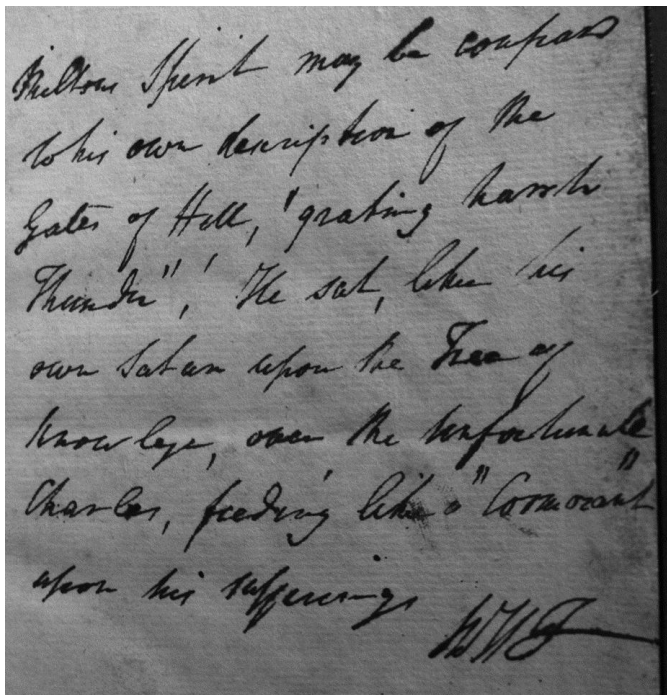 Miltons Spirit may be compard
to his own description of the
Gates of Hell, "grating harsh
Thunder", He sat, like his
own Satan upon the Tree of
Knowlege, over the unfortunate
Charles, feeding like a "Cormorant"
upon his sufferings